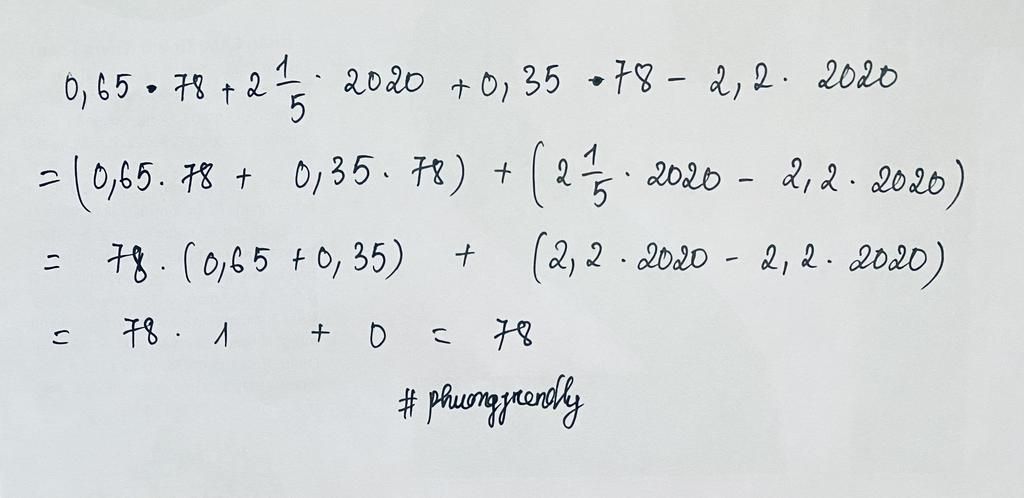 0,65 · 78 + 2 1/5 · 2020 + 0,35 · 78 - 2,2 · 2020
= (0,65 · 78 + 0,35 · 78) + (2 1/5 · 2020 - 2,2 · 2020)
= 78 · (0,65 + 0,35) + (2,2 · 2020 - 2,2 · 2020)
= 78 · 1 + 0 = 78